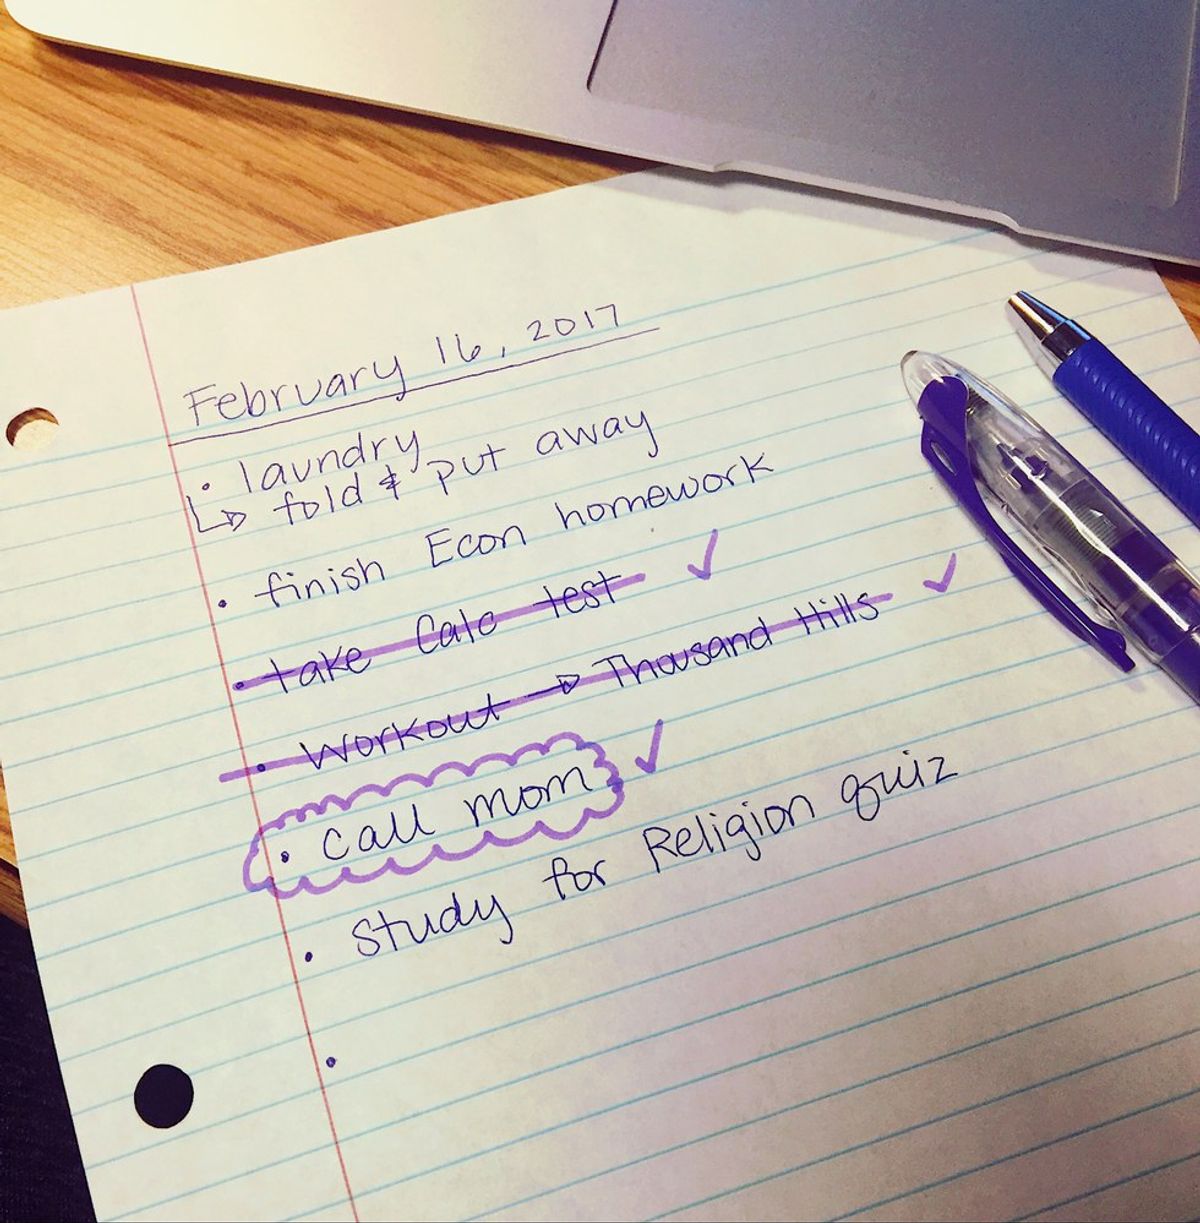 February 16, 2017
• laundry
↳ fold & put away
• finish Econ homework
• take Calc test ✓
• Workout → Thousand Hills ✓
• call mom ✓
• study for Religion quiz
•